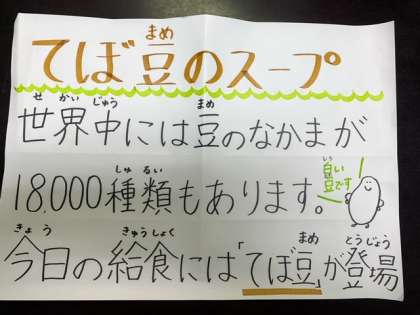 まめ
てぼ豆のスープ
せ かい じゅう まめ
世界中には豆のなかまが
しゅ るい
18,000種類もあります。
しろ
白い
豆です
きょう きゅうしょく まめ とうじょう
今日の給食には「てぼ豆」が登場